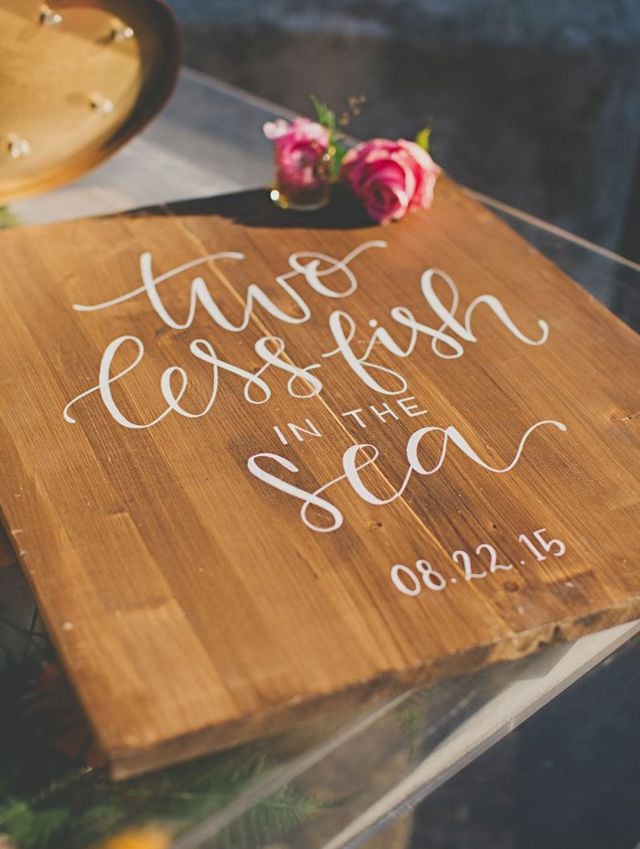 two
less fish
IN THE
sea
08.22.15